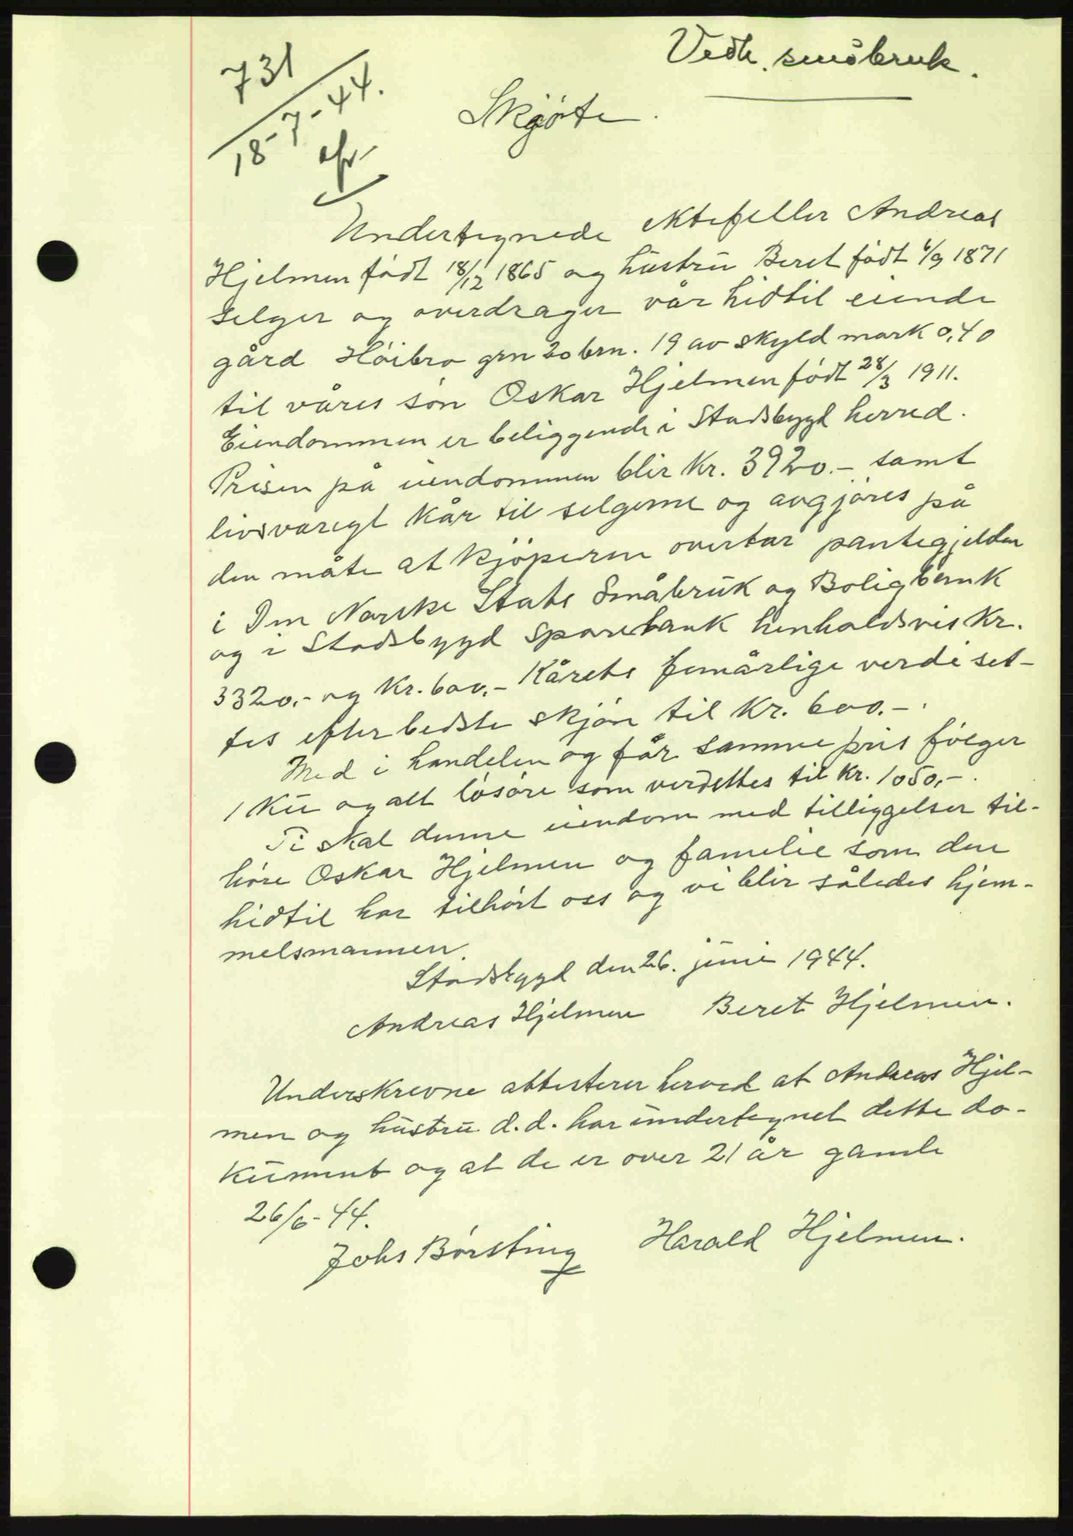 Vedk. småbruk.
731
18-7-44.
Skjøte
Undertegnede ektefeller Andreas
Hjelmen født 18/12 1865 og hustru Beret født 6/9 1871
selger og overdrager vår hidtil eiende
gård Høibro grn 20 brn. 19 av skyld mark 0,40
til våres sön Oskar Hjelmen født 28/3 1911.
Eiendommen er beliggende i Stadsbygd herred.
Prisen på eiendommen blir kr. 3920.- samt
livsvaregt kår til selgerne og avgjöres på
den måte at kjöperen overtar pantegjelden
i Den Norske Stats Småbruk og Boligbank
og i Stadsbygd Sparebank henholdsvis kr.
3320.- og kr. 600.- Kårets femårlige verdi set-
tes efter bedste skjön til kr. 600.-.
Med i handelen og får samme pris fölger
1 ku og alt lösöre som verdettes til kr. 1050,-.
Ti skal denne eiendom med tilliggelser til-
höre Oskar Hjelmen og familie som den
hidtil har tilhört oss og vi blir således hjem-
melsmannen.
Stadsbygd den 26. juni 1944.
Andreas Hjelmen Beret Hjelmen.
Underskrevne attesterer herved at Andreas Hjel-
men og hustru d.d. har undertegnet dette do-
kument og at de er over 21 år gamle
26/6-44.
Johs Börsting Harald Hjelmen.